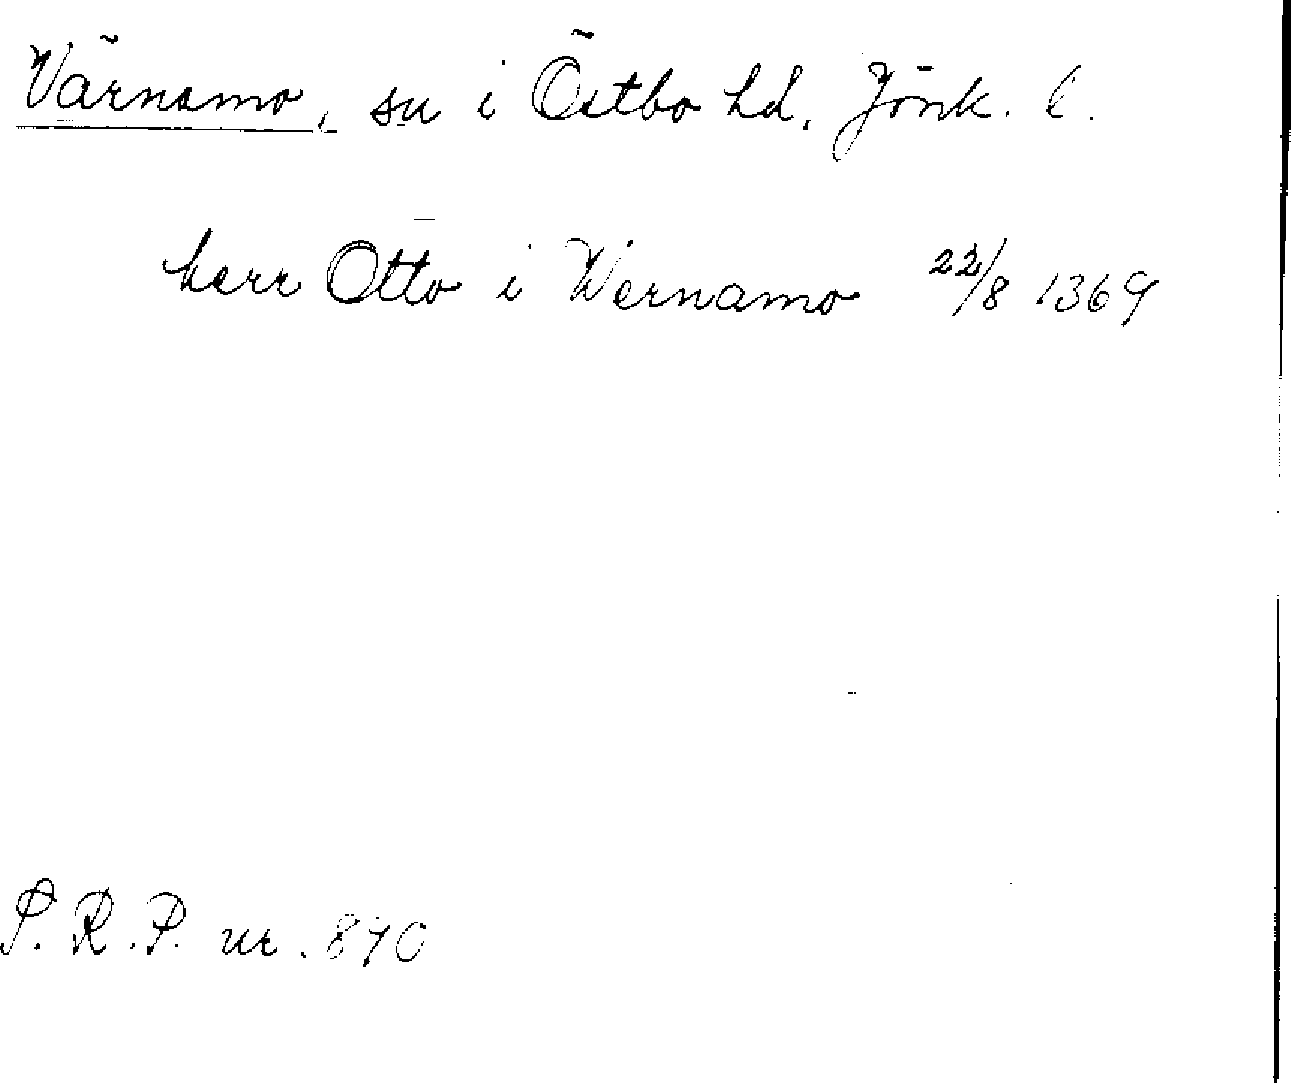 Värnamo, sn i Östbo hd. Jönk. l.
herr Otto i Wernamo 22/8 1369
S. R. P. nr. 870